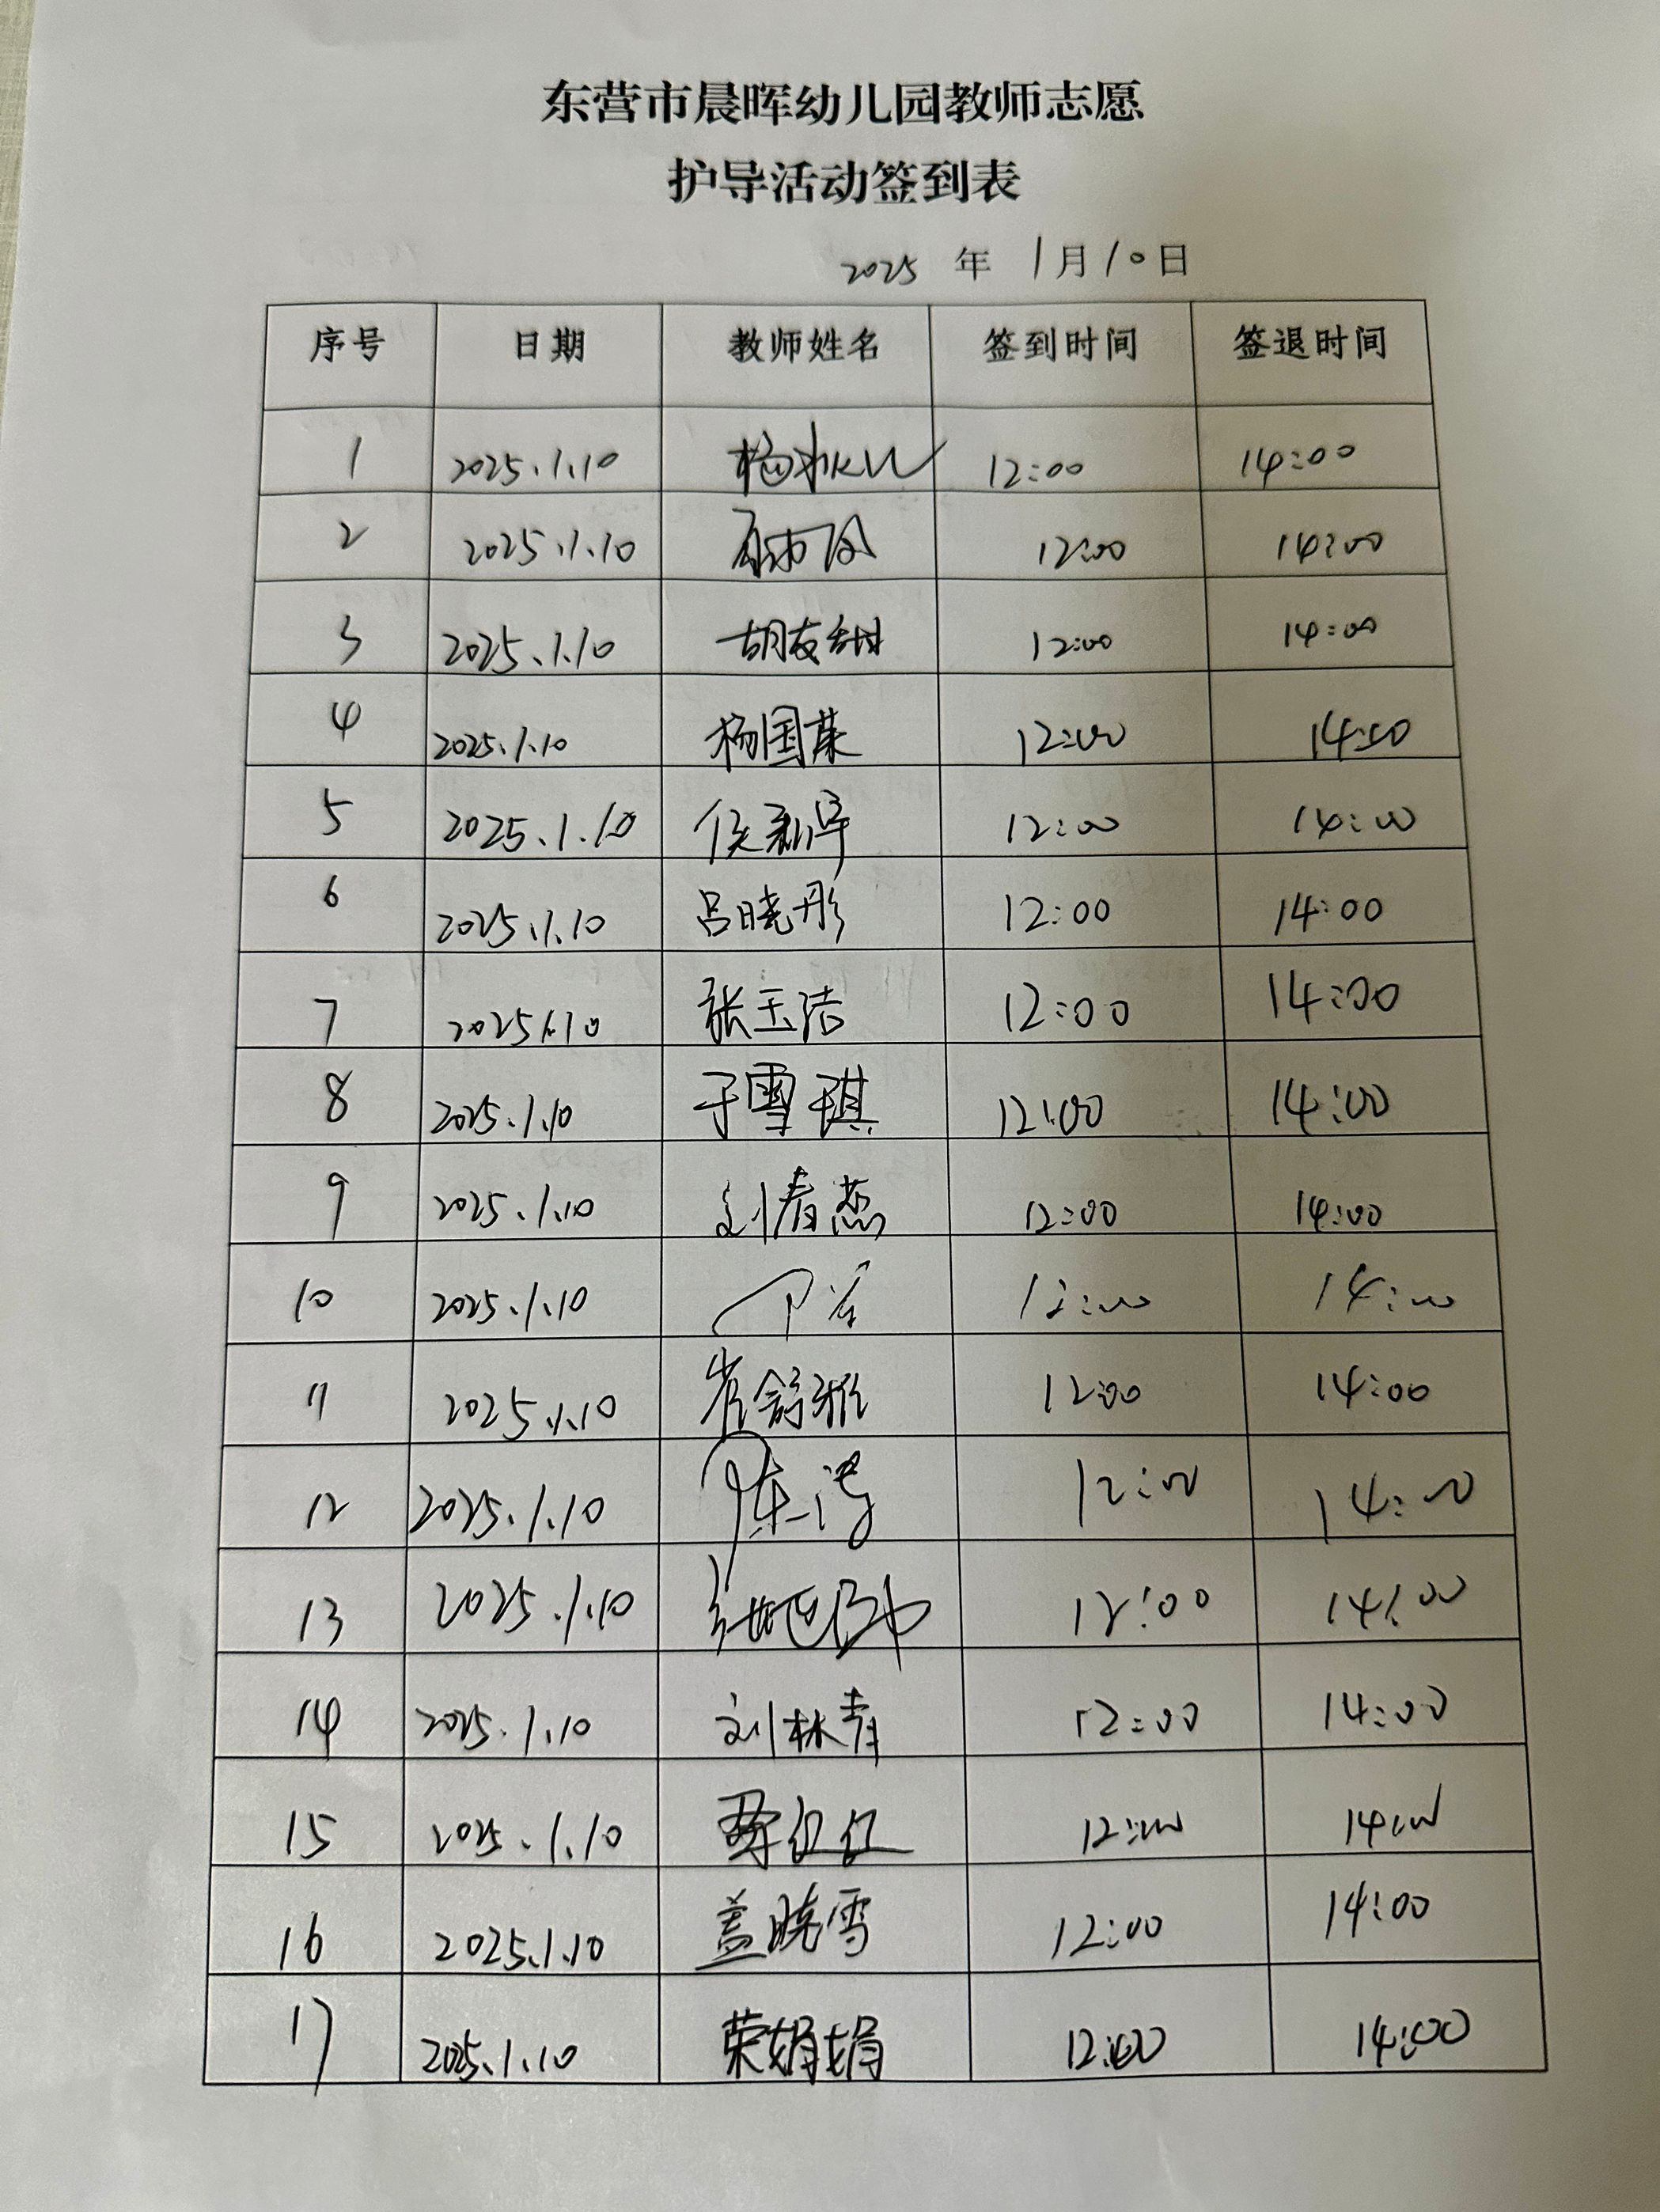 东营市晨晖幼儿园教师志愿
护导活动签到表
2025 年 1月10日
序号 日期 教师姓名 签到时间 签退时间
1 2025.1.10 12:00 14:00
2 2025.1.10 12:00 14:00
3 2025.1.10 胡友甜 12:00 14:00
4 2025.1.10 杨国菜 12:00 14:00
5 2025.1.10 12:00 14:00
6 2025.1.10 吕晓彤 12:00 14:00
7 2025.1.10 张玉洁 12:00 14:00
8 2025.1.10 于雪琪 12:00 14:00
9 2025.1.10 刘春蕊 12:00 14:00
10 2025.1.10 12:00 14:00
11 2025.1.10 崔舒雅 12:00 14:00
12 2025.1.10 12:00 14:00
13 2025.1.10 12:00 14:00
14 2025.1.10 刘林青 12:00 14:00
15 2025.1.10 12:00 14:00
16 2025.1.10 盖晓雪 12:00 14:00
17 2025.1.10 荣娟娟 12:00 14:00